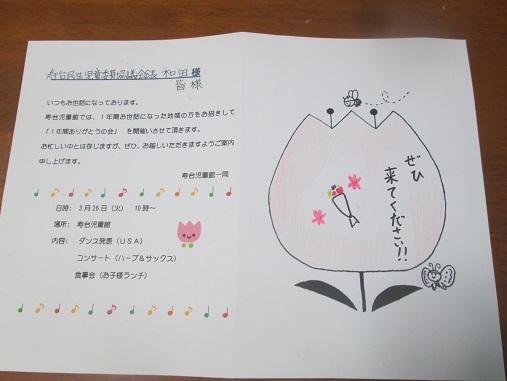 寿台民生児童委員協議会会長 和田 様
皆 様
いつもお世話になっております。
寿台児童館では、１年間お世話になった地域の方をお招きして
「１年間ありがとうの会」 を開催いさせて頂きます。
お忙しい中とは存じますが、ぜひ、お越しいただきますようご案内
申し上げます。
寿台児童館一同
日時： ３月２６日（火） １０時～
場所： 寿台児童館
内容： ダンス発表（ＵＳＡ）
コンサート（ハープ＆サックス）
食事会（お子様ランチ）
ぜひ
来てください!!